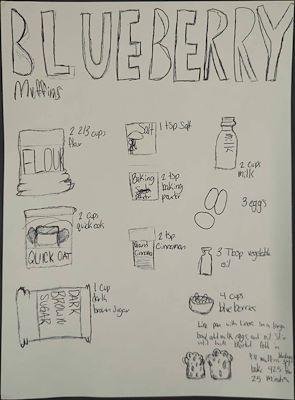 BLUEBERRY
Muffins
FLOUR
2 2/3 cups
flour
Salt
1 tsp Salt
MILK
2 cups
milk
Baking
2 tsp
baking
3 eggs
QUICK OAT
2 cups
quick oak
Ground
2 tsp
Cinnamon
3 Tbsp vegetable
oil
DARK
BROWN
SUGAR
1 cup
dark
brown Sugar
4 cups
blueberries
Line pan with liners in a large
bowl add milk eggs and oil Stir
until
Fill muffin
bake 425 for
25 minutes